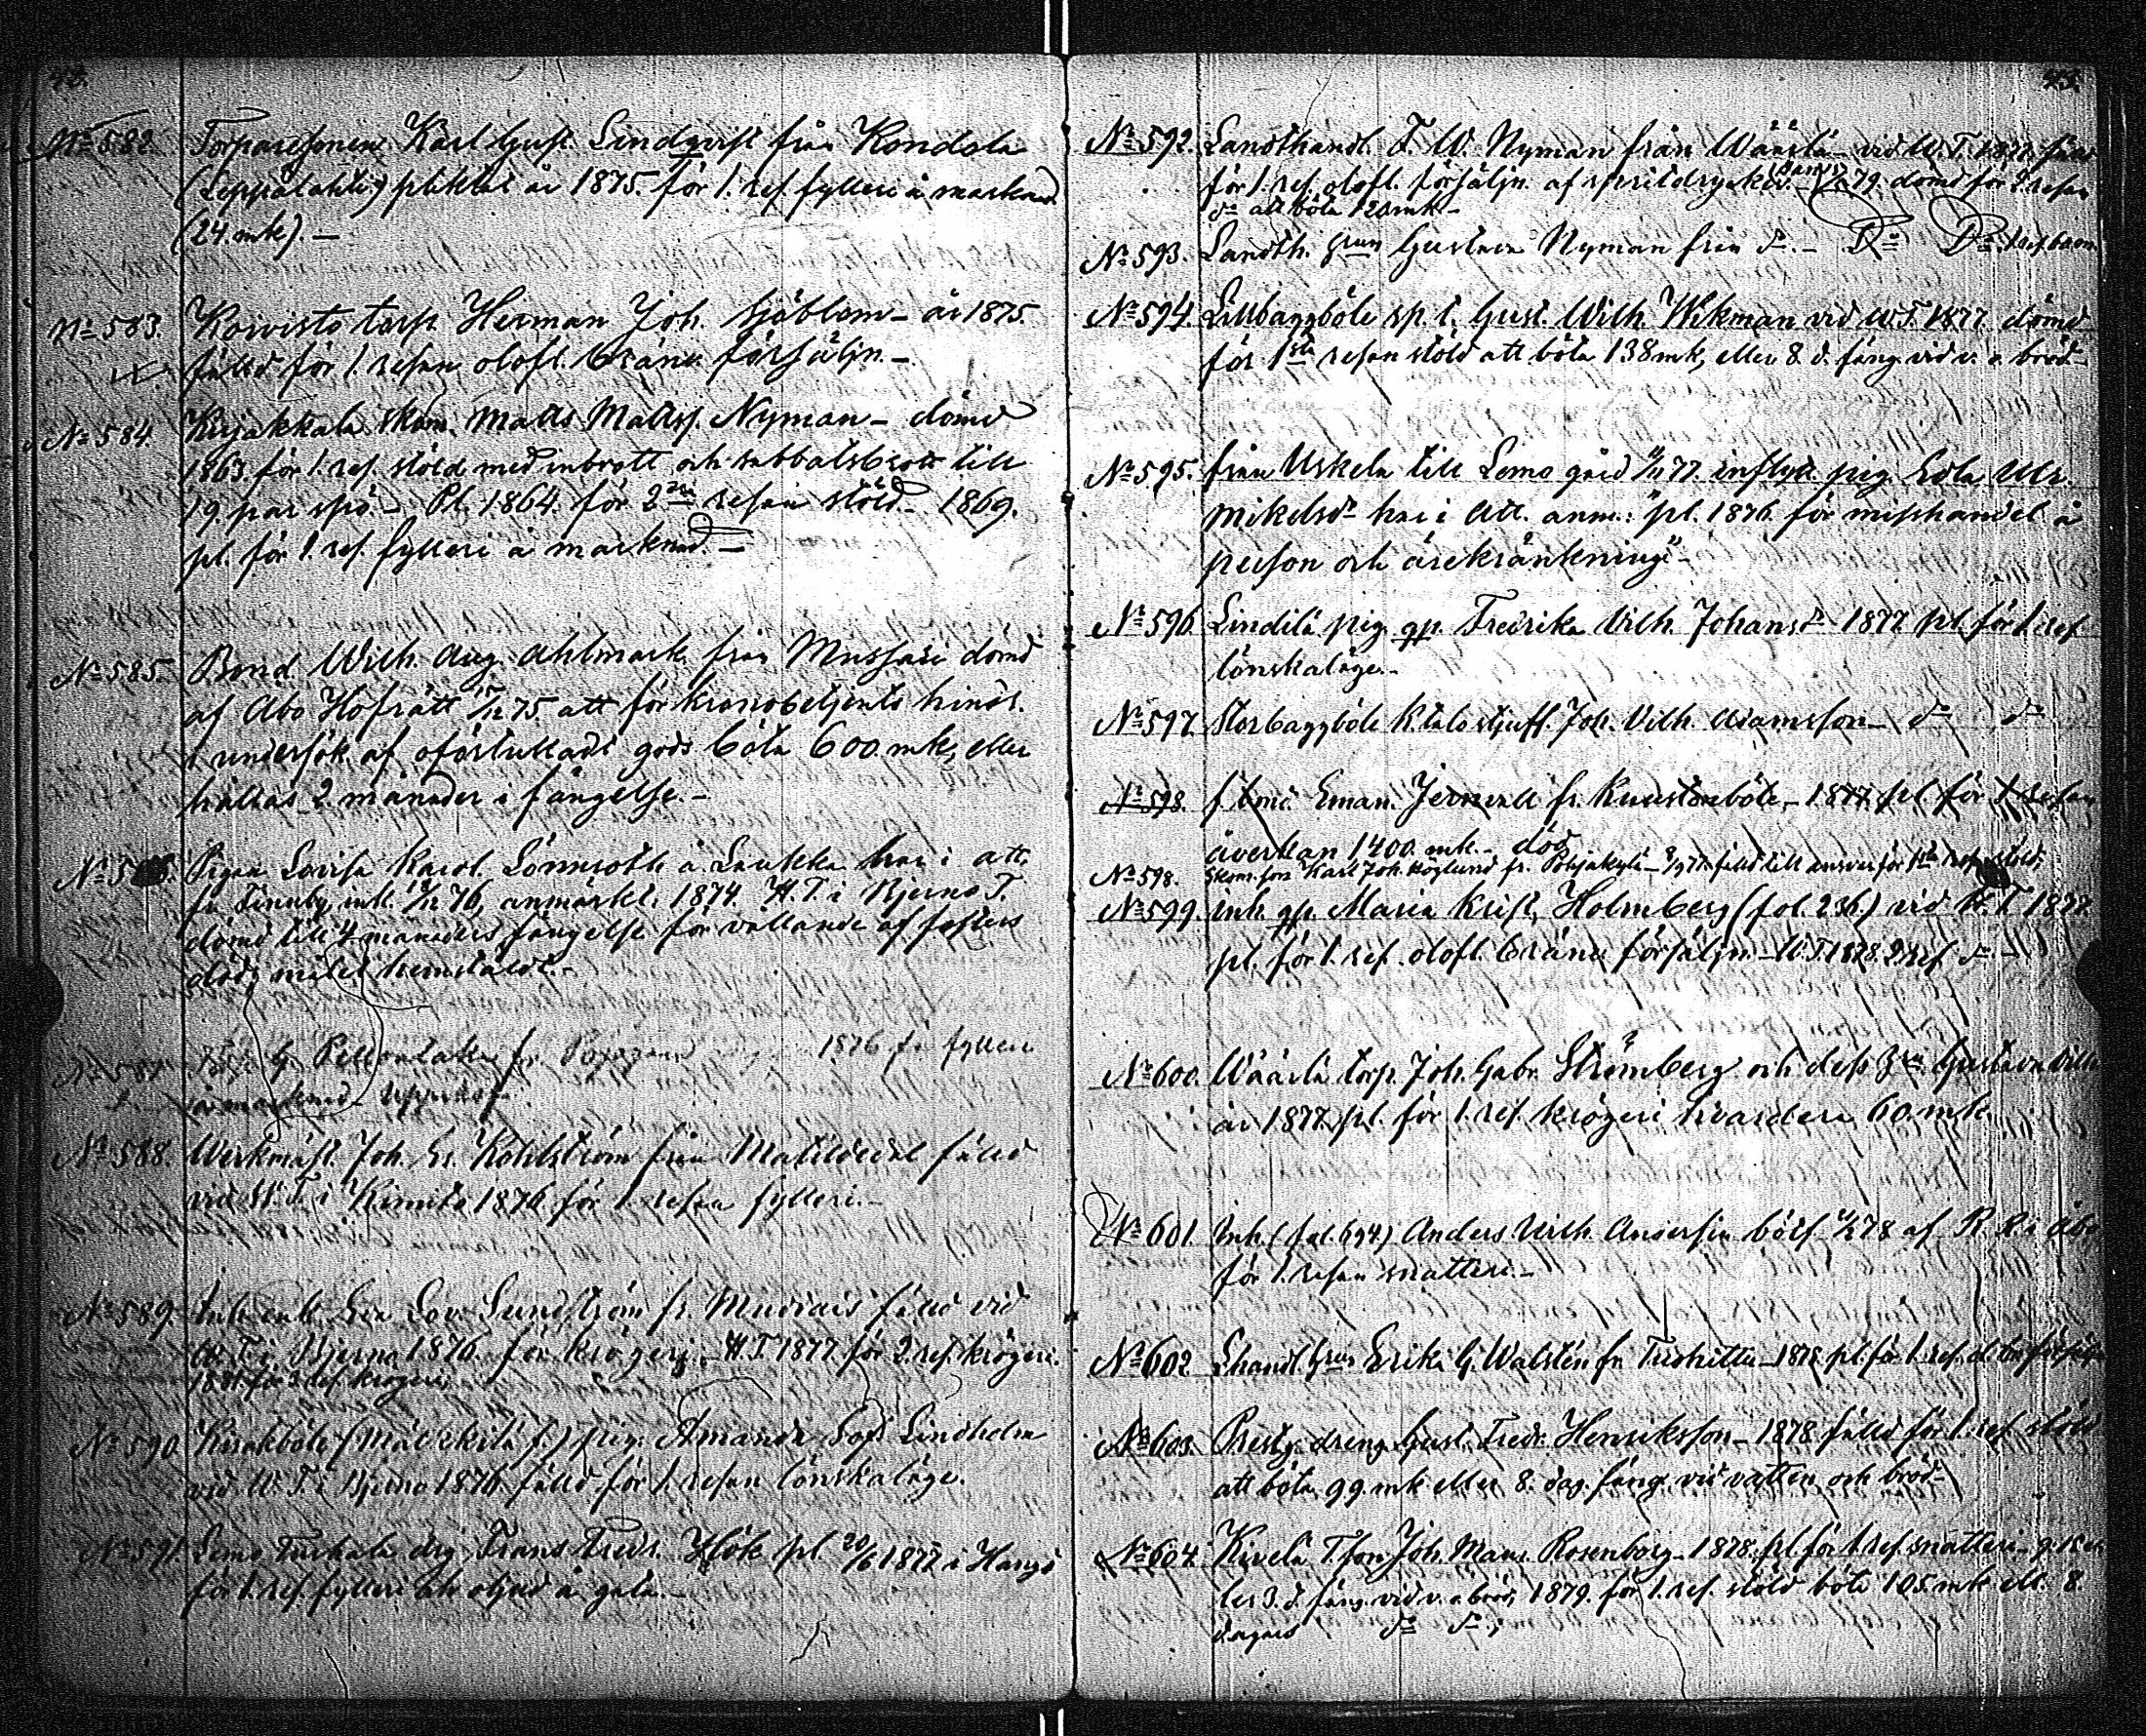 42.
No 582. Torparesonen Karl Gust. Lindqvist från Kondola
(Leppälahti) pliktat år 1875. för 1. res. fylleri å marknad
(24. mk). —
No 583. Koivisto torp. Herman Joh. Sjöblom – år 1875.
fälld för 1. resan olofl. bränv. försäljn. –
No 584. Kirjakkala skom. Matts Mattss. Nyman – dömd
1863. för 1. res. stöld med inbrott och sabbatsbrott till
19. par spö. – Pl. 1864. för 2dra resan stöld. – 1869.
pl. för 1. res. fylleri å marknad. –
No 585. Bond. Wilh. Aug. Ahlmark från Mussari dömd
af Åbo Hofrätt 15/12 75. att för kronobetjents hindr.
i undersök. af oförtulladt gods böta 600. mk, eller
hållas 2. månader i fängelse. –
No 5 Pigan Lovisa Karol. Lönnroth å Laukka har i att.
fr. Finnby, inl. 76, anmärkt: 1874. H.T. i Bjerno T.
dömd till 4. månaders fängelse för vållande af fosters
död; målet hemstäldt. –
No 587. G. Pellonlaka fr. 1876 för fylleri
å marknad
No 588. Werkmäst. Joh. Es. Kohlström från Matildedal fälld
vid W. T. i Kimito 1876 för 1. resan fylleri. –
No 589. Inh. enk. Eva Lov. Sundström fr. Mudiais fälld vid
W. T. i Bjerno 1876. för krögeri. – H.T. 1877 för 2. res. krögeri.
1881. för 3. res. krögeri;
No 590. Kirjakböle pig. Amanda Sofi Lindholm
vid W. T. i Bjerno 1876. fälld för 1. resan lönskaläge.
No 591. Lemo Turkala drg Frans Fredr. Höök pl. 20/6 1877 i Hangö
för 1. res. fylleri och oljud å gata. –
43.
No 592. Landthandl. F. W. Nyman från Wäärlä – vid W. T. 1877. fäld
för 1. res. olofl. försäljn. af spritdrycker. – 79. dömd för 2. resan
do att böta 120 mk –
No 593. Landth. hrun Gustava Nyman från do. – Do Do
No 594. Lillbaggböle sp. t. Gust. Wilh. Wikman vid W.T. 1877 dömd
för 1sta resan stöld att böta 138 mk, eller 8. d. fäng. vid v. o. bröd. –
No 595. från Uskela till Lemo gård 77. inflytt. pig. Edla Ulr.
Mikelsdr har i att. anm.: "pl. 1876 för misshandel å
person och ärekränkning" –
No 596. Lindilä pig. qp. Fredrika Vilh. Johansdr 1877 pl. för 1. res
lönskaläge. –
No 597. Storbaggböle Joh. Vilh. Adamsson – do do
No 598. f. Eman. Jernvall fr. Kuustonböle, – 1877. pl. för 1. resan
åverkan 1400. mk. – död
No 598. Skom. son Karl Joh. Höglund fr. Pohjakylä – fälld till ansvar för 1sta res. stöld;
No 599. Inh. qp. Maria Krist. Holmberg (fol. 236.) vid H. T. 1877
pl. för 1. res. olofl. bränv. försäljn. – W. T. 1878. 2. res do –
No 600. Wäärlä torp. Joh. Gabr. Strömberg och dess h:u Gustava Vilh
år 1877 pl. för 1. res. krögeri hvardera 60. mk.
No 601. Inh. (fol. 694.) Anders Wilh. Andersin bötf. 78 af R. R. i Åbo
för 1. resan snatteri. –
No 602. Lhandl. hrun Erika G. Walstén fr. – 1878 pl. för 1. res. försäljn
No 603. Prestg. dreng Gust. Fredr. Henriksson – 1878. fälld för 1. res. stöld
att böta 99. mk eller 8. dag. fäng. vid vatten och bröd –
No 604. Kivelä T. son Joh. Maur. Rosenborg – 1878. pl. för 1. res. snatteri –
ler 3. d. fäng. vid v. o. bröd, 1879. för 1. res. stöld böta 105. mk ell. 8.
dagars do do;